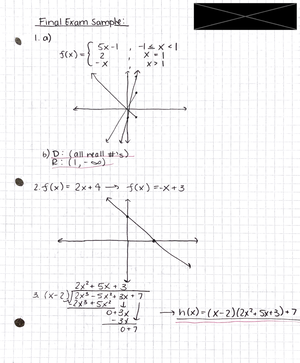 Final Exam Sample:
1. a)
f(x) = { 5x-1 , -1 ≤ x < 1
2 , x = 1
-x , x > 1
b) D: (all reall #'s)
R: (1, -∞)
2. f(x) = 2x+4 → f(x) = -x+3
2x² + 5x + 3
3. (x-2)√2x³ - 5x² + 3x + 7
- 2x³ + 5x² ↓
0 + 3x
- 3x
0 + 7
→ h(x) = (x-2)(2x² + 5x + 3) + 7